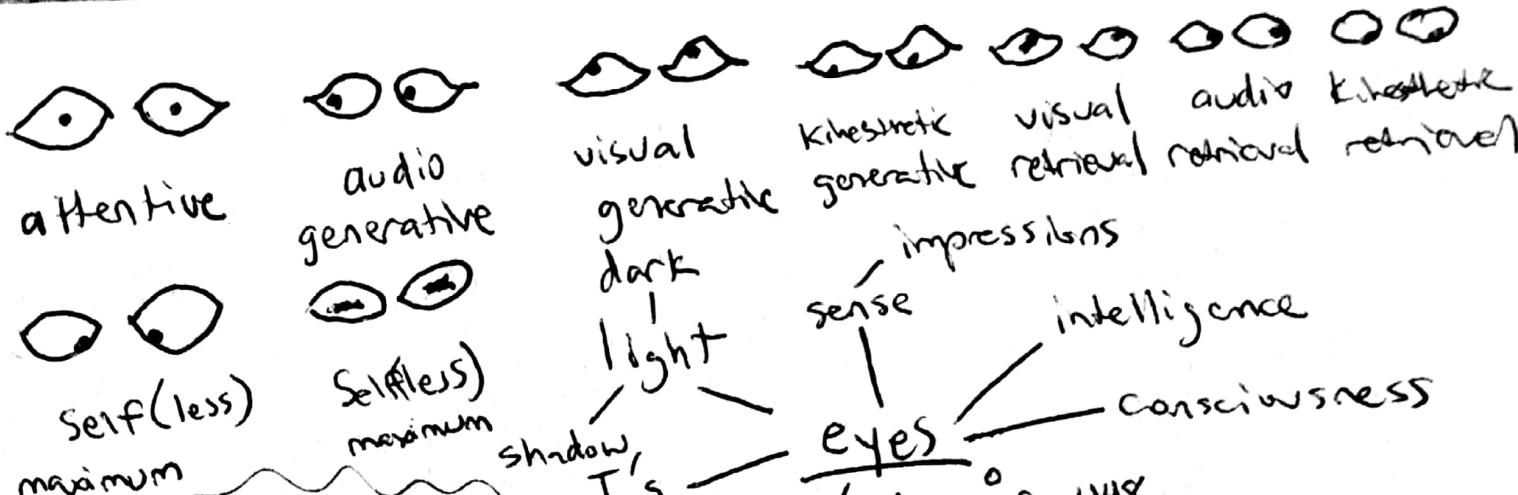 attentive
audio
generative
visual
generative
kinesthetic
generative
visual
retrieval
audio
retrieval
kinesthetic
retrieval
self(less)
maximum
self(less)
maximum
dark
light
shadow,
I's
sense
impressions
intelligence
consciousness
eyes